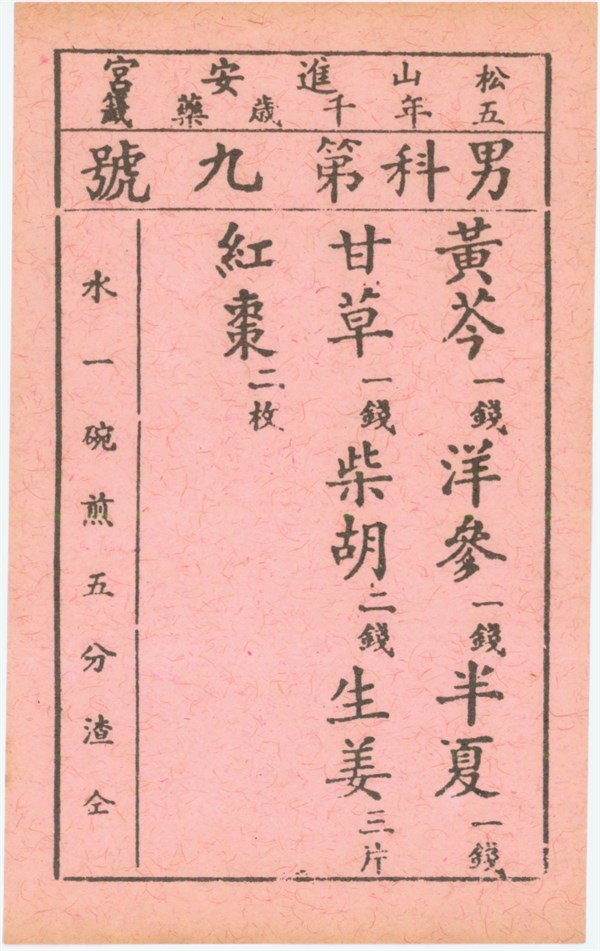 松山進安宮
五年千歳藥籤
男科第九號
黃芩一錢洋參一錢半夏一錢
甘草一錢柴胡二錢生姜三片
紅棗二枚
水一碗煎五分渣仝